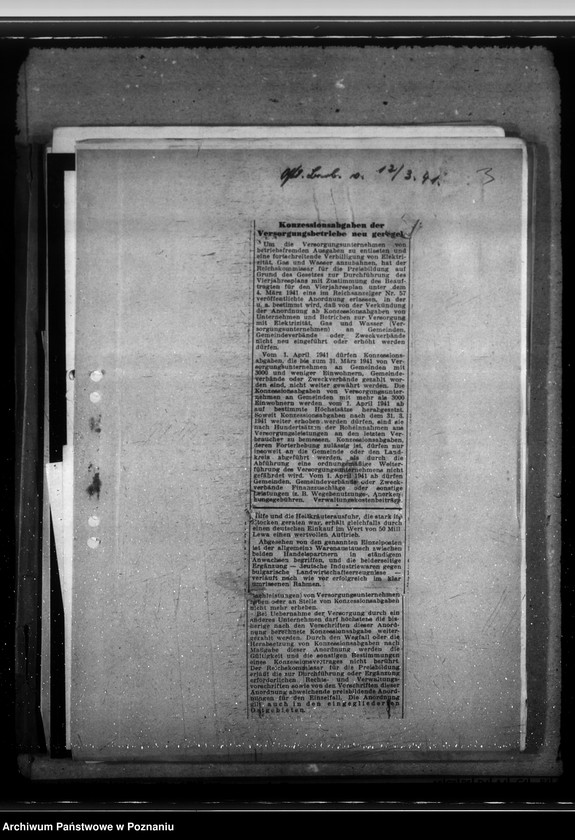 12/3. 41. 3
Konzessionsabgaben der
Versorgungsbetriebe neu geregel
Um die Versorgungsunternehmen von
betriebsfremden Ausgaben zu entlasten und
eine fortschreitende Verbilligung von Elektri-
zität, Gas und Wasser anzubahnen, hat der
Reichskommissar für die Preisbildung auf
Grund des Gesetzes zur Durchführung des
Vierjahresplans mit Zustimmung des Beauf-
tragten für den Vierjahresplan unter dem
4. März 1941 eine im Reichsanzeiger Nr. 57
veröffentlichte Anordnung erlassen, in der
u. a. bestimmt wird, daß von der Verkündung
der Anordnung ab Konzessionsabgaben von
Unternehmen und Betrieben zur Versorgung
mit Elektrizität, Gas und Wasser (Ver-
sorgungsunternehmen) an Gemeinden,
Gemeindeverbände oder Zweckverbände
nicht neu eingeführt oder erhöht werden
dürfen.
Vom 1. April 1941 dürfen Konzessions-
abgaben, die bis zum 31. März 1941 von Ver-
sorgungsunternehmen an Gemeinden mit
3000 und weniger Einwohnern, Gemeinde-
verbände oder Zweckverbände gezahlt wor-
den sind, nicht weiter gewährt werden. Die
Konzessionsabgaben von Versorgungsunter-
nehmen an Gemeinden mit mehr als 3000
Einwohnern werden vom 1. April 1941 ab
auf bestimmte Höchstsätze herabgesetzt.
Soweit Konzessionsabgaben nach dem 31. 3.
1941 weiter erhoben werden dürfen, sind sie
nach Hundertsätzen der Roheinnahmen aus
Versorgungsleistungen an den letzten Ver-
braucher zu bemessen. Konzessionsabgaben,
deren Forterhebung zulässig ist, dürfen nur
insoweit an die Gemeinde oder den Land-
kreis abgeführt werden, als durch die
Abführung eine ordnungsmäßige Weiter-
führung des Versorgungsunternehmens nicht
gefährdet wird. Vom 1. April 1941 ab dürfen
Gemeinden, Gemeindeverbände oder Zweck-
verbände Finanzzuschläge oder sonstige
Leistungen (z. B. Wegebenutzungs-, Anerken-
nungsgebühren, Verwaltungskostenbeiträge,
Hilfe und die Heilkräuterausfuhr, die stark ins
Stocken geraten war, erhält gleichfalls durch
einen deutschen Einkauf im Wert von 50 Mill.
Lewa einen wertvollen Antrieb.
Abgesehen von den genannten Einzelposten
ist der allgemein Warenaustausch zwischen
beiden Handelspartnern in ständigem
Anwachsen begriffen, und die beiderseitige
Ergänzung — deutsche Industriewaren gegen
bulgarische Landwirtschaftserzeugnisse —
verläuft nach wie vor erfolgreich im klar
umrissenen Rahmen.
Sachleistungen) von Versorgungsunternehmen
neben oder an Stelle von Konzessionsabgaben
nicht mehr erheben.
Bei Uebernahme der Versorgung durch ein
anderes Unternehmen darf höchstens die bis-
herige nach den Vorschriften dieser Anord-
nung berechnete Konzessionsabgabe weiter-
gezahlt werden. Durch den Wegfall oder die
Herabsetzung von Konzessionsabgaben nach
Maßgabe dieser Anordnung werden die
Gültigkeit und die sonstigen Bestimmungen
eines Konzessionsvertrages nicht berührt.
Der Reichskommissar für die Preisbildung
erläßt die zur Durchführung oder Ergänzung
erforderlichen Rechts- und Verwaltungs-
vorschriften sowie von den Vorschriften dieser
Anordnung abweichende preisbildende Anord-
nungen für den Einzelfall. Die Anordnung
gilt auch in den eingegliederten
Ostgebieten.
Archiwum Państwowe w Poznaniu